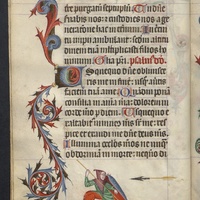 tre purgatum septuplum Tu dñe
seruabis nos: et custodies nos a ge
neracione hac in eternum. In circu
itu impii ambulant: secundum altitu
dinem tuā multiplicasti filios ho
minum. Gloria pri. psalm9 dd.
Usquequo dñe obliuisce
ris me in finē: usquequo auertis
faciem tuā a me. Quamdiu ponā
consilia in aīa mea: dolorem in
corde meo p diem. Usquequo ex
altabit inimicus m̄s sr me: res
pice et exaudi me dñe deus m̄s.
Illumina oculos m̄os ne unqͣ
obdormiā in morte: nequando di